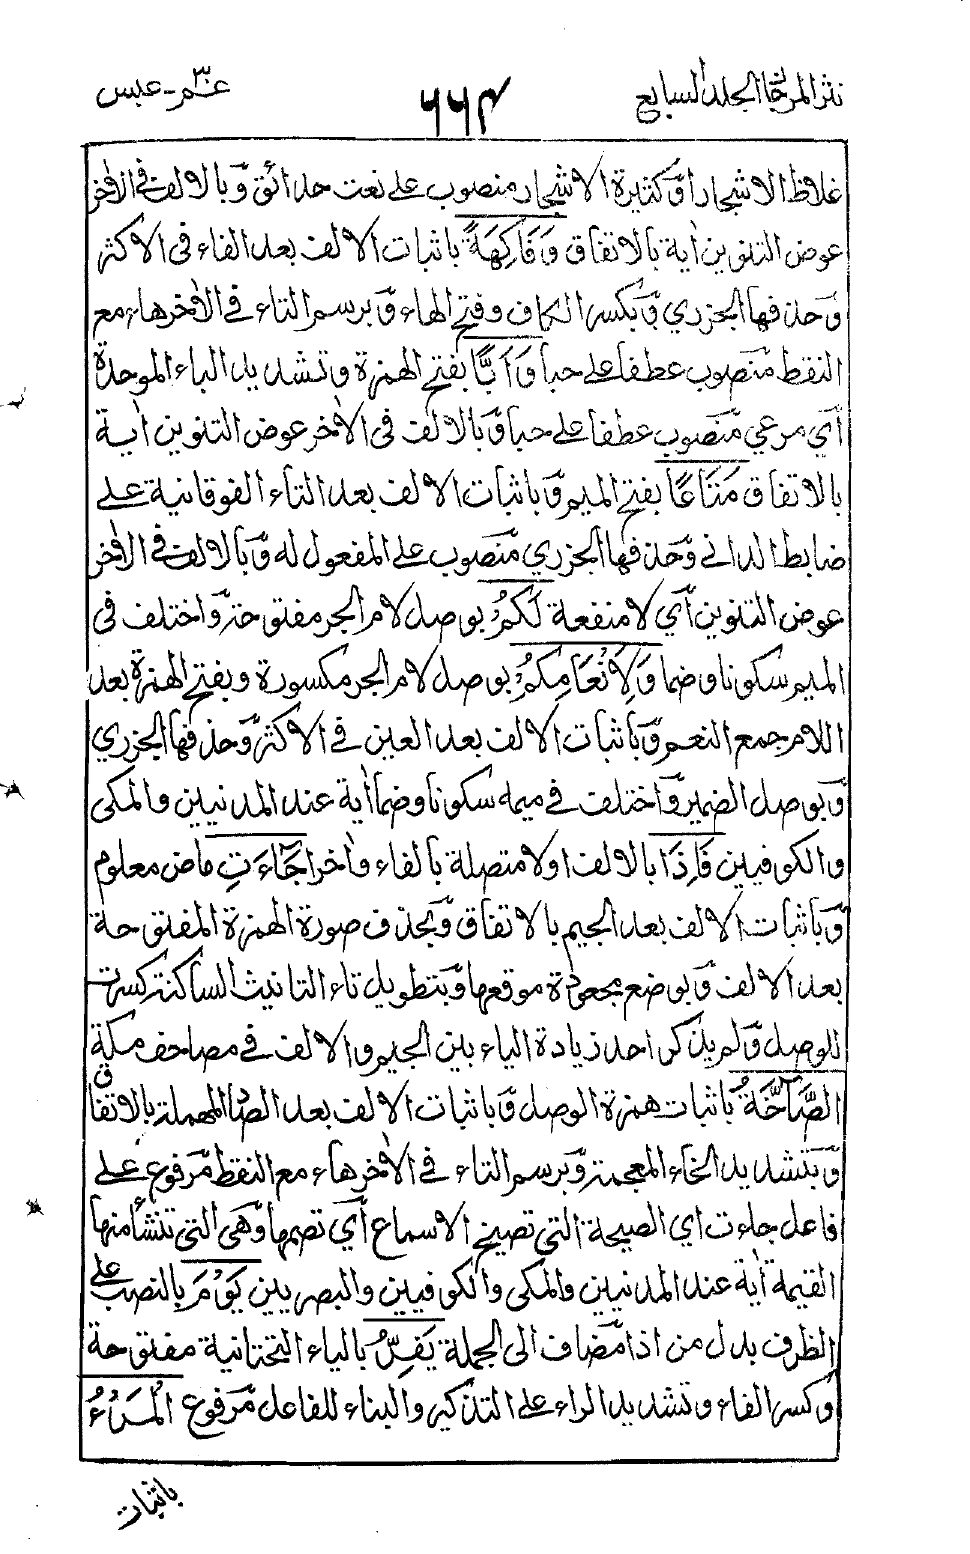 نثر المرجان الجلد السابع
٦٦٤
عمّ ٣٠ - عبس
غلاظ الاشجار او كثيرة الاشجار منصوب على نعت حدائق وبالالف فى الاٰخر
عوض التنوين اٰية بالاتفاق وَفَاكِهَةً باثبات الالف بعد الفاء فى الاكثر
وحذفها الجزري وبكسر الكاف وفتح الهاء وبرسم التاء فى الاٰخر هاء مع
النقط منصوب عطفا على حبا وَاَبًّا بفتح الهمزة وتشديد الباء الموحدة
اي مرعي منصوب عطفا على حبا وبالالف فى الاٰخر عوض التنوين اٰية
بالاتفاق مَتَاعًا بفتح الميم وباثبات الالف بعد التاء الفوقانية على
ضابط الداني وحذفها الجزري منصوب على المفعول له وبالالف فى الاٰخر
عوض التنوين اي لا منفعة لَكُمْ بوصل لام الجر مفتوحة واختلف فى
الميم سكونا وضما وَلِاَنْعَامِكُمْ بوصل لام الجر مكسورة وبفتح الهمزة بعد
اللام جمع النعم وباثبات الالف بعد العين فى الاكثر وحذفها الجزري
وبوصل الضمير واختلف فى ميمه سكونا وضما اٰية عند المدنيين والمكى
والكوفيين فَاِذَا بالالف اولا متصلة بالفاء واٰخرا جَآءَتِ ماض معلوم
وباثبات الالف بعد الجيم بالاتفاق وبحذف صورة الهمزة المفتوحة
بعد الالف وبوضع مجعودة موقعها وبتطويل تاء التانيث الساكنة كسرت
للوصل ولم يذكر احد زيادة الياء بين الجيم والالف فى مصاحف مكة
الصَّآخَّةُ باثبات همزة الوصل وباثبات الالف بعد الصاد المهملة بالاتفاق
وبتشديد الخاء المعجمة وبرسم التاء فى الاٰخر هاء مع النقط مرفوع على
فاعل جاءت اي الصيحة التى تصيخ الاسماع اي تصمها وهى التى تنشأ منها
القيمة اٰية عند المدنيين والمكى والكوفيين والبصريين يَوْمَ بالنصب على
الظرف بدل من اذا مضاف الى الجملة يَفِرُّ بالياء التحتانية مفتوحة
وكسر الفاء وتشديد الراء على التذكير والبناء للفاعل مرفوع الْمَرْءُ
باثبات